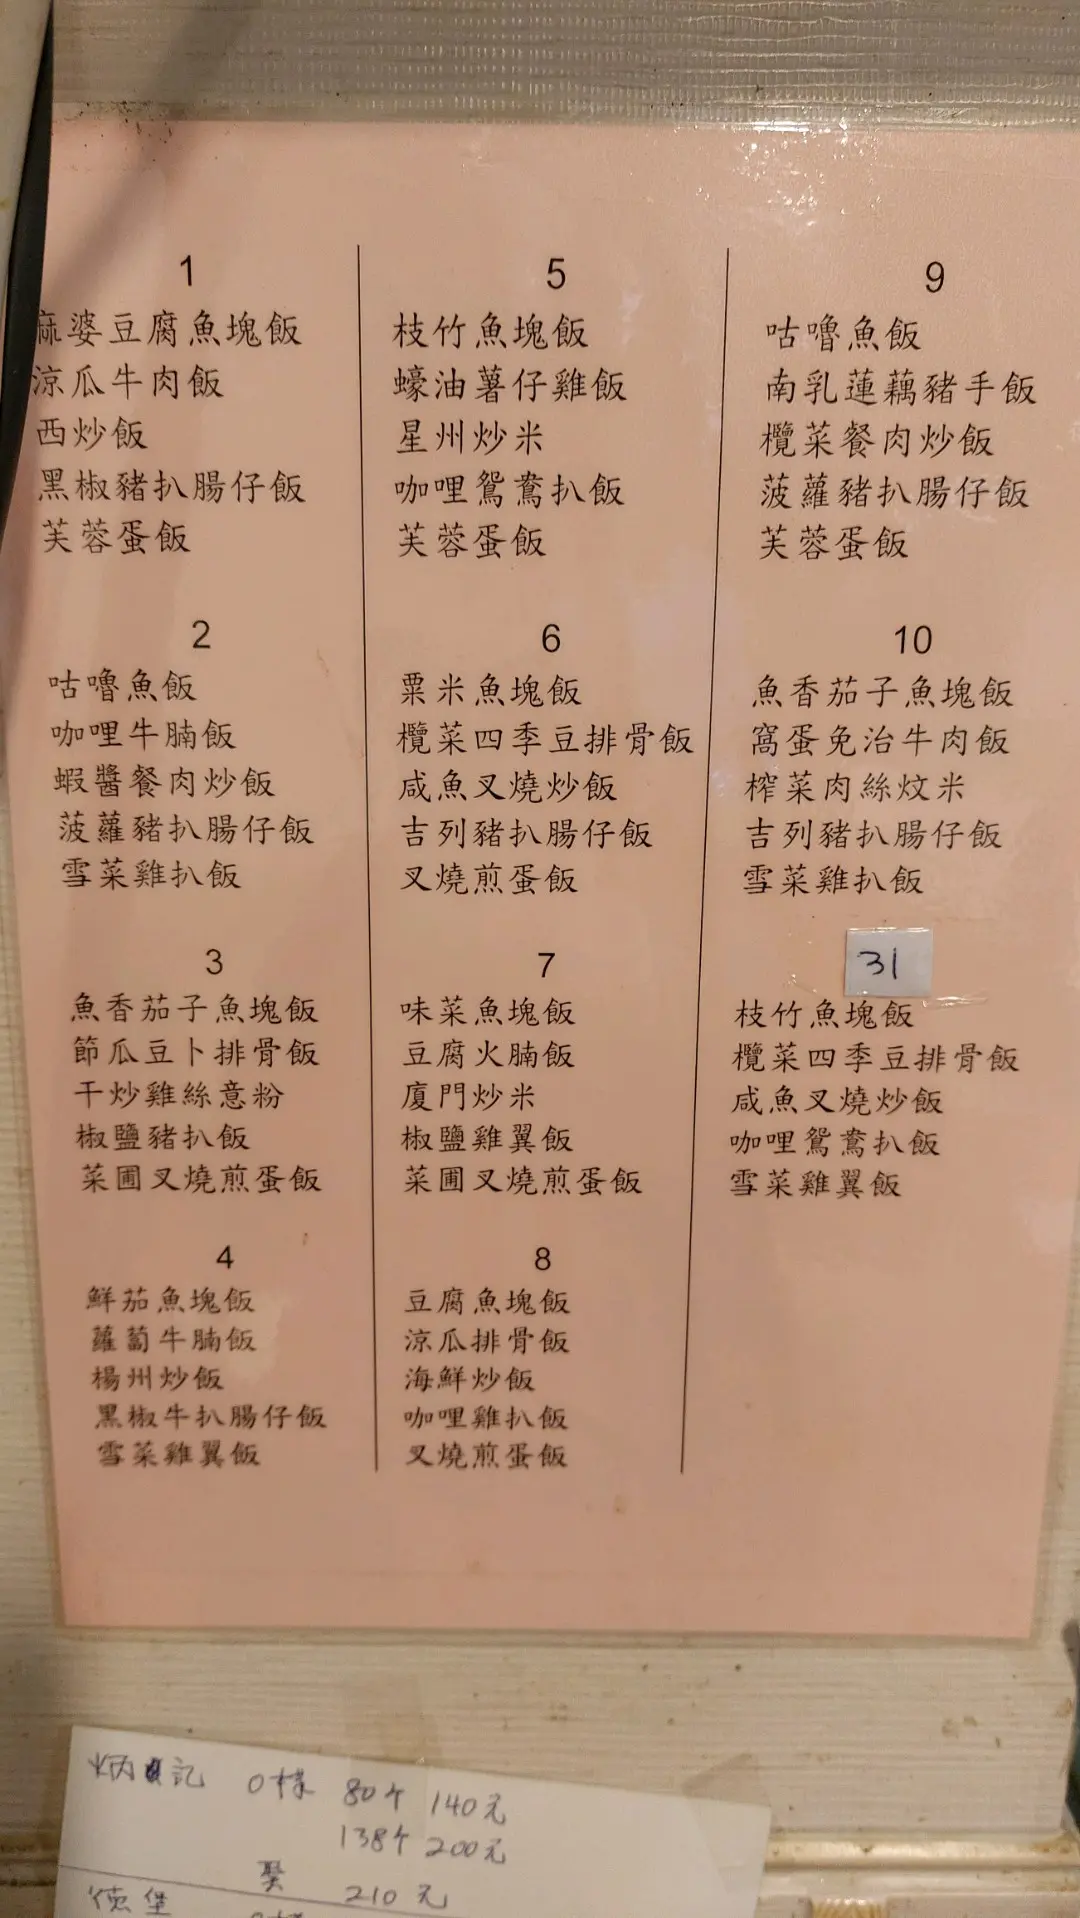 1
麻婆豆腐魚塊飯
涼瓜牛肉飯
西炒飯
黑椒豬扒腸仔飯
芙蓉蛋飯
2
咕嚕魚飯
咖哩牛腩飯
蝦醬餐肉炒飯
菠蘿豬扒腸仔飯
雪菜雞扒飯
3
魚香茄子魚塊飯
節瓜豆卜排骨飯
干炒雞絲意粉
椒鹽豬扒飯
菜圃叉燒煎蛋飯
4
鮮茄魚塊飯
蘿蔔牛腩飯
楊州炒飯
黑椒牛扒腸仔飯
雪菜雞翼飯
5
枝竹魚塊飯
蠔油薯仔雞飯
星州炒米
咖哩鴛鴦扒飯
芙蓉蛋飯
6
粟米魚塊飯
欖菜四季豆排骨飯
咸魚叉燒炒飯
吉列豬扒腸仔飯
叉燒煎蛋飯
7
味菜魚塊飯
豆腐火腩飯
廈門炒米
椒鹽雞翼飯
菜圃叉燒煎蛋飯
8
豆腐魚塊飯
涼瓜排骨飯
海鮮炒飯
咖哩雞扒飯
叉燒煎蛋飯
9
咕嚕魚飯
南乳蓮藕豬手飯
欖菜餐肉炒飯
菠蘿豬扒腸仔飯
芙蓉蛋飯
10
魚香茄子魚塊飯
窩蛋免治牛肉飯
榨菜肉絲炆米
吉列豬扒腸仔飯
雪菜雞扒飯
31
枝竹魚塊飯
欖菜四季豆排骨飯
咸魚叉燒炒飯
咖哩鴛鴦扒飯
雪菜雞翼飯
炳記 0樣 80个 140元
138个 200元
210元
德堡